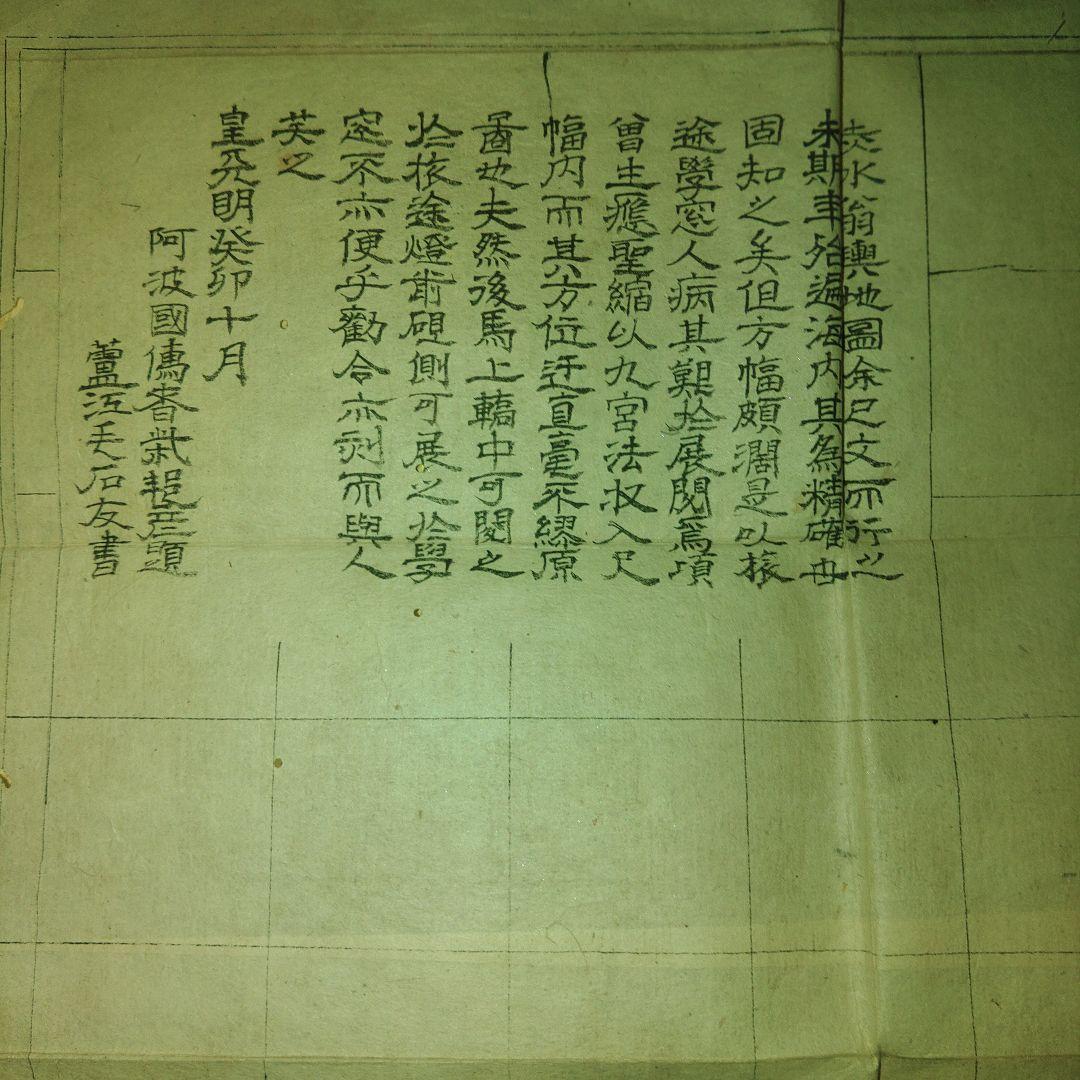 赤水翁輿地圖余已文而行之
未期年殆遍海内其為精確也
固知之矣但方幅頗濶是以旅
途學窓人病其艱於展閲焉頃
曾生應聖縮以九宮法収入尺
幅内而其方位迂直毫不繆原
圖也夫然後馬上轎中可閲之
於旅途燈前硯側可展之於學
窓不亦便乎勸令亦刻而與人
共之
皇天明癸卯十月
阿波國儒者柴邦彦題
蘆江石友書